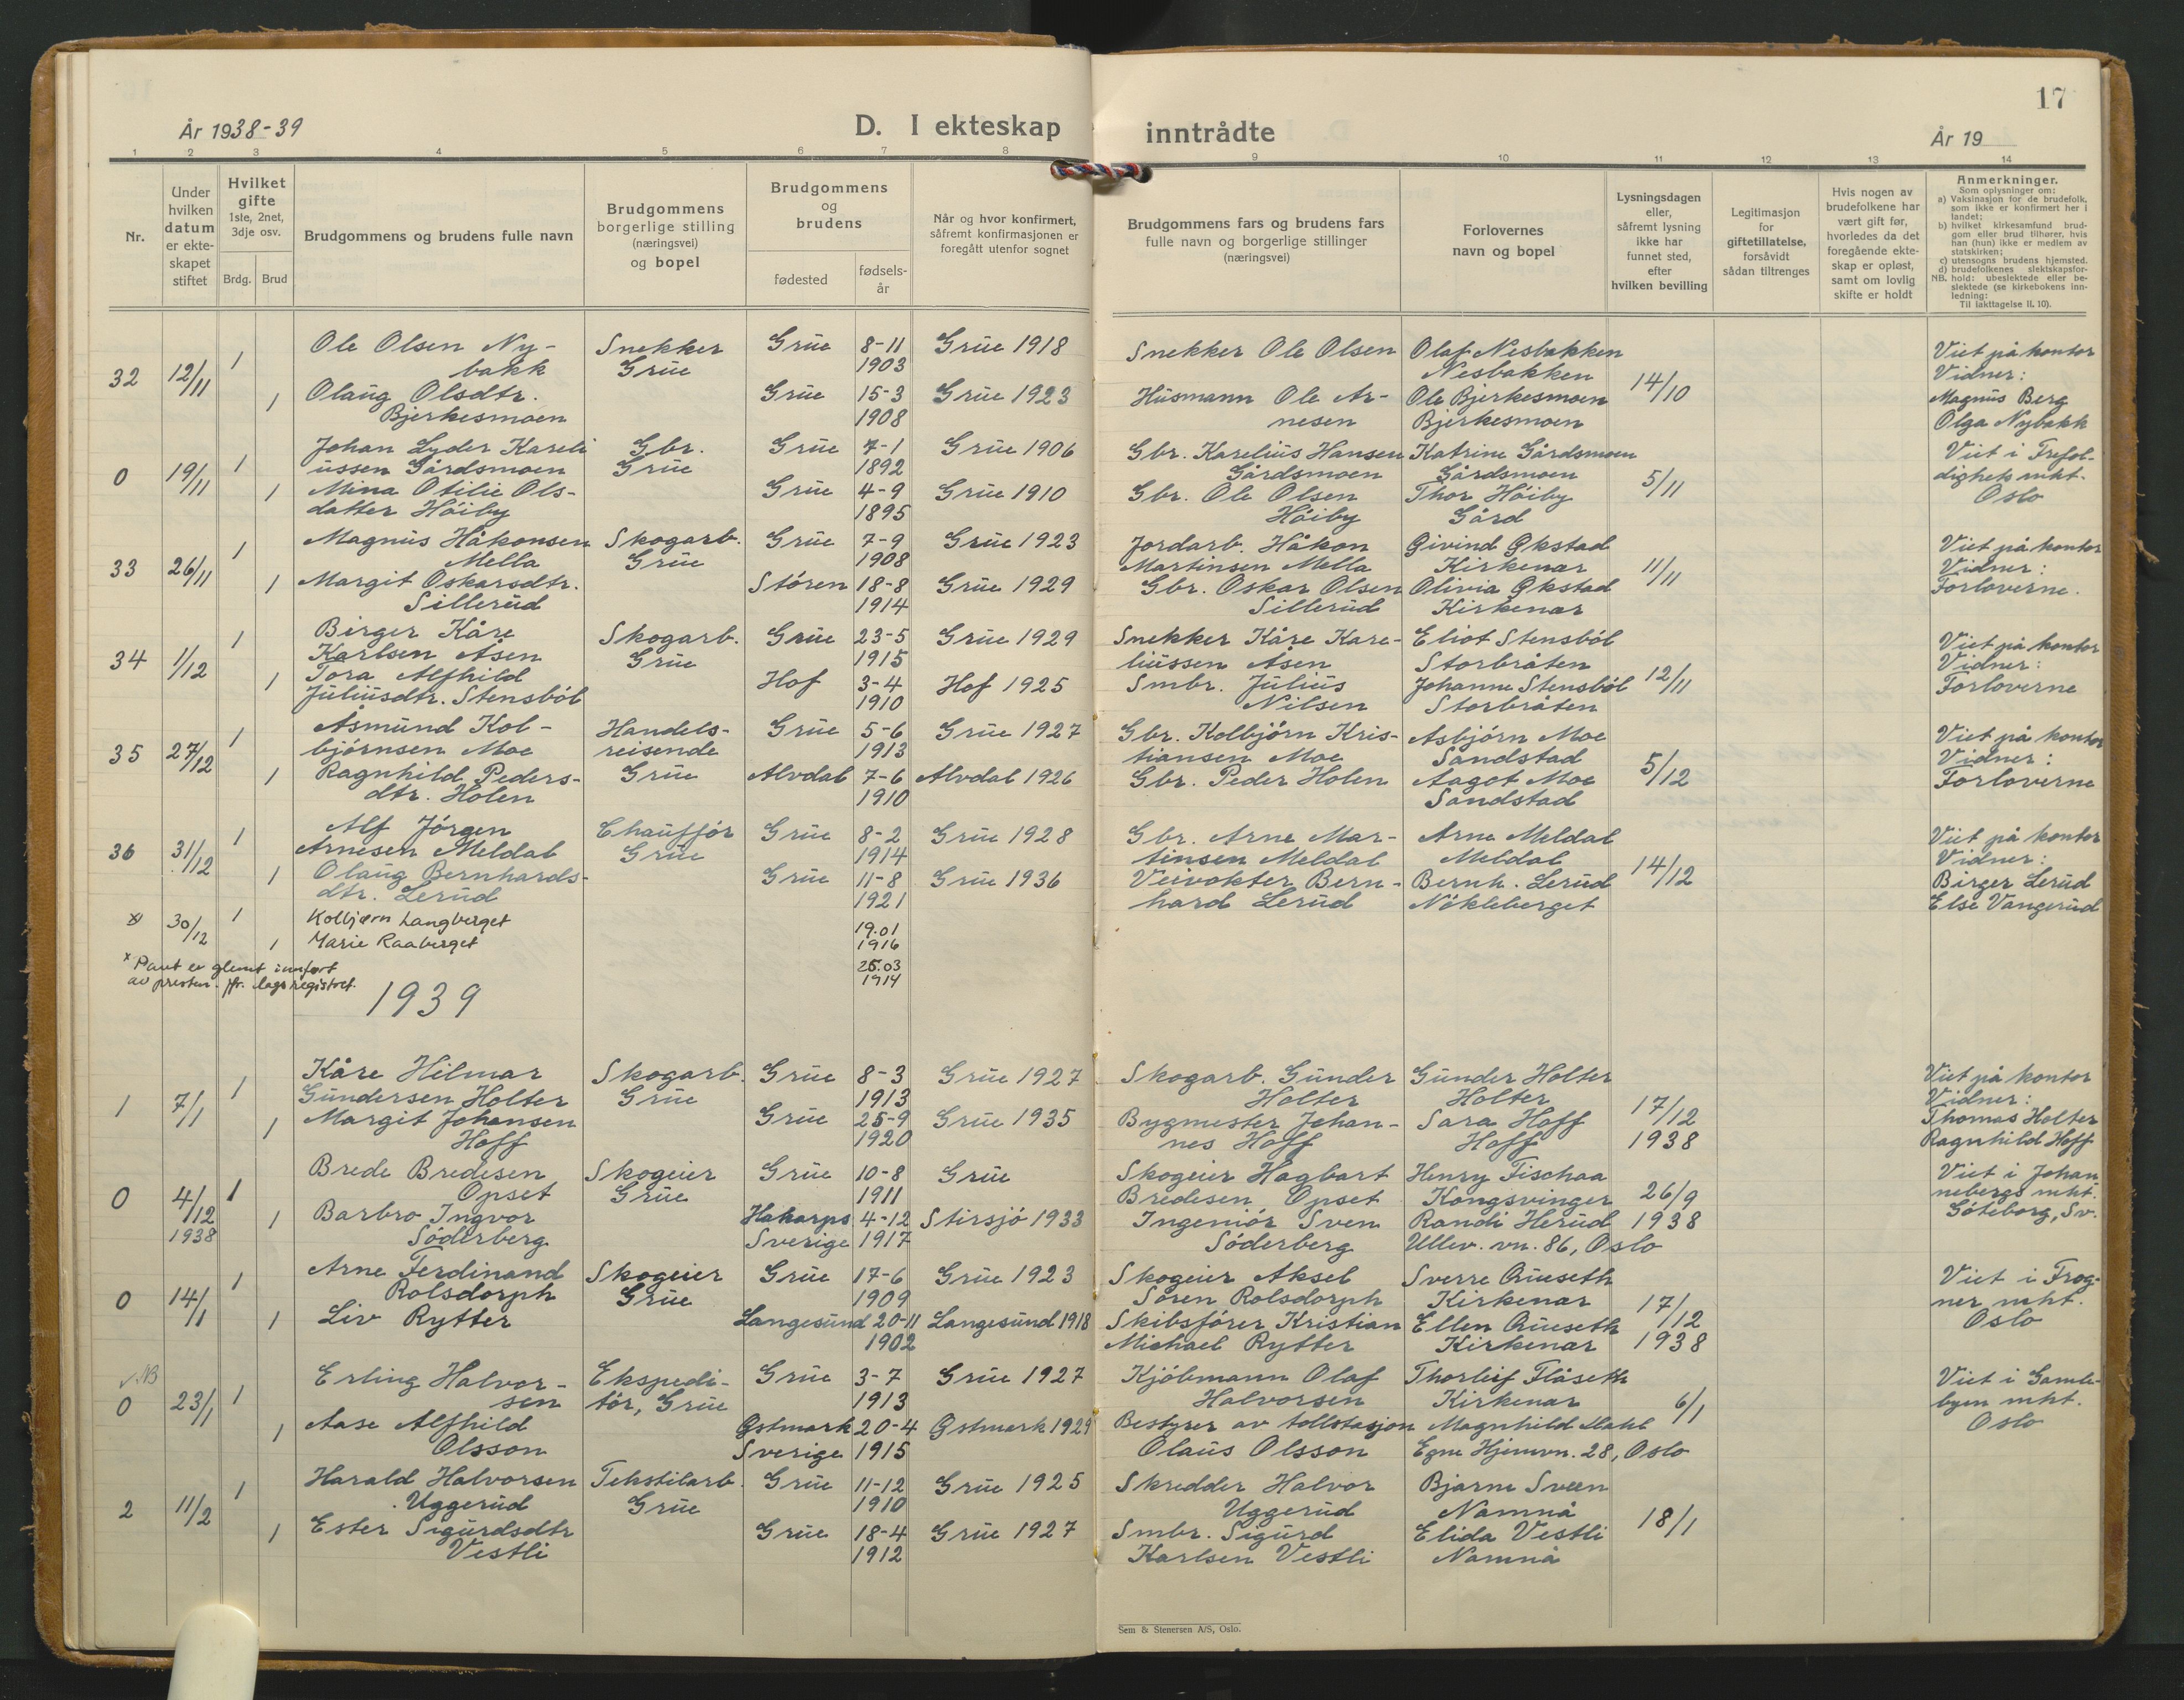 17
År 1938-39
D. I ekteskap inntrådte
År 19
1 2 3 4 5 6 7 8 9 10 11 12 13 14
Nr.
Under
hvilken
datum
er ekte-
skapet
stiftet
Hvilket
gifte
1ste, 2net,
3dje osv.
Brdg. Brud
Brudgommens og brudens fulle navn
Brudgommens
borgerlige stilling
(næringsvei)
og bopel
Brudgommens
og
brudens
fødested
fødsels-
år
Når og hvor konfirmert,
såfremt konfirmasjonen er
foregått utenfor sognet
Brudgommens fars og brudens fars
fulle navn og borgerlige stillinger
(næringsvei)
Forlovernes
navn og bopel
Lysningsdagen
eller,
såfremt lysning
ikke har
funnet sted,
efter
hvilken bevilling
Legitimasjon
for
giftetillatelse,
forsåvidt
sådan tiltrenges
Hvis nogen av
brudefolkene har
vært gift før,
hvorledes da det
foregående ekte-
skap er opløst,
samt om lovlig
skifte er holdt
Anmerkninger.
Som oplysninger om:
a) Vaksinasjon for de brudefolk,
som ikke er konfirmert her i
landet;
b) hvilket kirkesamfund brud-
gom eller brud tilhører, hvis
han (hun) ikke er medlem av
statskirken;
c) utensogns brudens hjemsted.
d) brudefolkenes slektskapsfor-
NB. hold: ubeslektede eller be-
slektede (se kirkebokens inn-
ledning:
Til iakttagelse II, 10).
Ole Olsen Ny- Snekker Grue 8-11 Grue 1918 Snekker Ole Olsen Olaf Nesbakken Viet på kontor
32 12/11 1 bakk Grue 1903 Nesbakken 14/10 Vidner:
1 Olaug Olsdtr. Grue 15-3 Grue 1923 Husmann Ole Ar- Ole Bjerkesmoen Magnus Berg
Bjerkesmoen 1908 nesen Bjerkesmoen Olga Nybakk
Johan Lyder Kareli Gbr. Grue 7-1 Grue 1906 Gbr. Karelius Hansen Katrine Gårdsmoen Viet i Trefol-
0 19/11 1 ussen Gårdsmoen Grue 1892 Gårdsmoen Gårdsmoen 5/11 dighets mkt.
1 Mina Otilie Ols- Grue 4-9 Grue 1910 Gbr. Ole Olsen Thor Höiby Oslo
datter Höiby 1895 Höiby Gård
Magnus Håkonsen Skogarb. Grue 7-9 Grue 1923 Jordarb. Håkon Eivind Ekstad Viet på kontor
33 26/11 1 Mella Grue 1908 Martinsen Mella Kirkenær 11/11 Vidner:
1 Margit Oskarsdtr. Stören 18-8 Grue 1929 Gbr. Oskar Olsen Olivia Ekstad Forloverne.
Sillerud 1914 Sillerud Kirkenær
Birger Kåre Skogarb. Grue 23-5 Grue 1929 Snekker Kåre Kare- Eliot Stensböl Viet på kontor
34 1/12 1 Karlsen Åsen Grue 1915 liussen Åsen Storbråten 12/11 Vidner:
1 Tora Alfhild Hof 3-4 Hof 1925 Smbr. Julius Johanne Stensböl Forloverne
Juliusdtr. Stensböl 1910 Nilsen Storbråten
Åsmund Kol- Handels- Grue 5-6 Grue 1927 Gbr. Kolbjörn Kris- Asbjörn Moe Viet på kontor
35 27/12 1 björnsen Moe reisende 1913 tiansen Moe Sandstad 5/12 Vidner:
1 Ragnhild Peders- Grue Alvdal 7-6 Alvdal 1926 Gbr. Peder Holen Aagot Moe Forloverne
dtr. Holen 1910 Sandstad
Alf Jörgen Chaufför Grue 8-2 Grue 1928 Gbr. Arne Mar- Arne Meldal Viet på kontor
36 31/12 1 Arnesen Meldal Grue 1914 tinsen Meldal Meldal 14/12 Vidner:
1 Olaug Bernhards- Grue 11-8 Grue 1936 Veivokter Bern- Bernh. Lerud Birger Lerud
dtr. Lerud 1921 hard Lerud Nökleberget Else Vangerud
x) 30/12 1 Kolbjørn Langberget 19.01 1916
1 Marie Raaberget 25.03 1914
x Paret er glemt innført
av presten. jfr. lagsregistret.
1939
Kåre Hilmar Skogarb. Grue 8-3 Grue 1927 Skogarb. Gunder Gunder Holter Viet på kontor
1 7/1 1 Gundersen Holter Grue 1913 Holter Holter 17/12 Vidner:
1 Margit Johansen Grue 25-9 Grue 1935 Bygmester Johan- Sara Hoff 1938 Thomas Holter
Hoff 1920 nes Hoff Hoff Ragnhild Hoff
Brede Bredesen Skogeier Grue 10-8 Grue Skogeier Hagbart Henry Tischaa Viet i Johan
0 4/12 1 Opset Grue 1911 Bredesen Opset Kongsvinger 26/9 nebergs mkt.
1938 1 Barbro Ingvor Hakarps 4-12 Stirsjö 1933 Ingeniör Sven Randi Herud 1938 Göteborg, Sv.
Söderberg Sverige 1917 Söderberg Ullev. vn. 86, Oslo
Arne Ferdinand Skogeier Grue 17-6 Grue 1923 Skogeier Aksel Sverre Grueseth Viet i Frog-
0 14/1 1 Rolsdorph Grue 1909 Sören Rolsdorph Kirkenær 17/12 ner mkt.
1 Liv Rytter Langesund 20-11 Langesund 1918 Skibsförer Kristian Ellen Grueseth 1938 Oslo
1902 Michael Rytter Kirkenær
NB Erling Halvor- Ekspedi- Grue 3-7 Grue 1927 Kjöbmann Olaf Thorleif Flåseth Viet i Gamle-
0 23/1 1 sen tör, Grue 1913 Halvorsen Kirkenær 6/1 byen mkt.
1 Aase Alfhild Östmark 20-4 Östmark 1929 Bestyrer av tollstasjon Magnhild Dahl Oslo
Olsson Sverige 1915 Olaus Olsson Egne Hjemvn. 28, Oslo
Harald Halvorsen Tekstilarb. Grue 11-12 Grue 1925 Skredder Halvor Bjarne Sveen
2 11/2 1 Uggerud Grue 1910 Uggerud Namnå 18/1
1 Ester Sigurdsdtr Grue 18-4 Grue 1927 Smbr. Sigurd Elida Vestli
Vestli 1912 Karlsen Vestli Namnå
Sem & Stenersen A/S, Oslo.